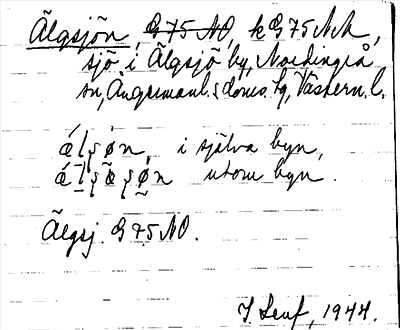 Älgsjön, G 75 NO, k G 75 NA,
sjö i Älgsjö by, Nordingrå
sn, Ångermanl. s. doms. tg, Västern. l.
i själva byn,
utom byn.
Älgsj. G 75 NO.
1944.